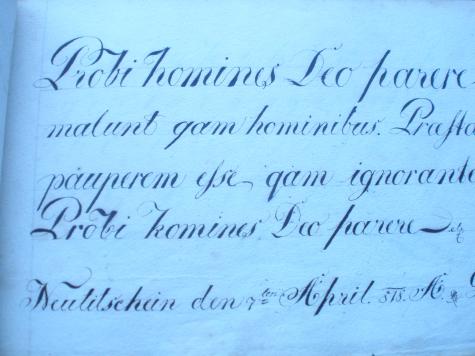 Probi homines Deo parere
malunt qam hominibus. Præsta
páuperem esse qam ignorante
Probi homines Deo parere etz
Neutitschein den 7ten April. 818. A.